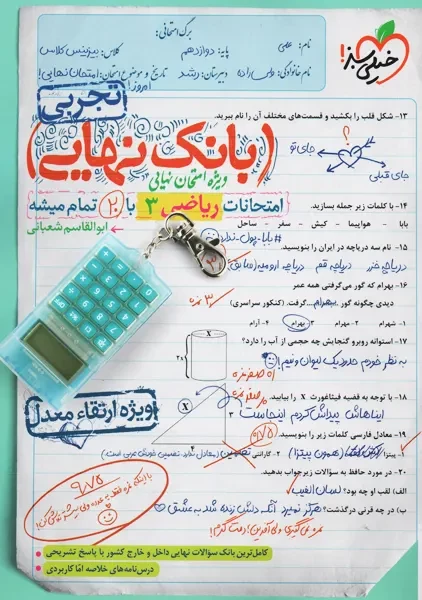 خیلی سبز!
برگ امتحانی:
نام: علی
پایه: دوازدهم
کلاس: بیزینس کلاس
نام خانوادگی:
دبیرستان: رشد
تاریخ و موضوع امتحان: امتحان نهایی!
امروز!
تجربی
(بانک نهایی)
ویژه امتحان نهایی
امتحانات ریاضی ۳ با ۲۰ تمام میشه
ابوالقاسم شعبانی
۱۳- شکل قلب را بکشید و قسمت‌های مختلف آن را نام ببرید.
؟
جای تو
جای قبلی
۱۴- با کلمات زیر جمله بسازید.
بابا - هواپیما - کیش - سفر - ساحل
#بابا-پول-ندارد
۱۵- نام سه دریاچه در ایران را بنویسید.
دریاچه خزر دریاچه قم دریاچه ارومیه (سابق)
۱۶- بهرام که گور می‌گرفتی همه عمر
دیدی چگونه گور بهرام گرفت. (کنکور سراسری)
۱. شهرام ۲. مهرام ۳. بهرام ۴. آرام
۱۷- استوانه روبرو گنجایش چه حجمی از آب را دارد؟
به نظر خودم حدود یک لیوان و نیم!
X
۲۸
۱۸- با توجه به قضیه فیثاغورث X را بیابید.
ایناهاش پیداش کردم اینجاست
X
۳
۴
۱۹- معادل فارسی کلمات زیر را بنویسید.
۰/۷۵
۱. پیتزا (همون پیتزا) ۲. گارانتی
۲۰- در مورد حافظ به سؤالات زیر جواب بدهید.
الف) لقب او چه بود؟ لسان الغیب
ب) در چه قرنی درگذشت؟ هرگز نمیرد آنکه دلش زنده شد به عشق
نمره نمی‌گیری ولی آفرین! دمت گرم!
۹/۷۵
ویژه ارتقاء معدل
کامل‌ترین بانک سؤالات نهایی داخل و خارج کشور با پاسخ تشریحی
درس‌نامه‌های خلاصه امّا کاربردی